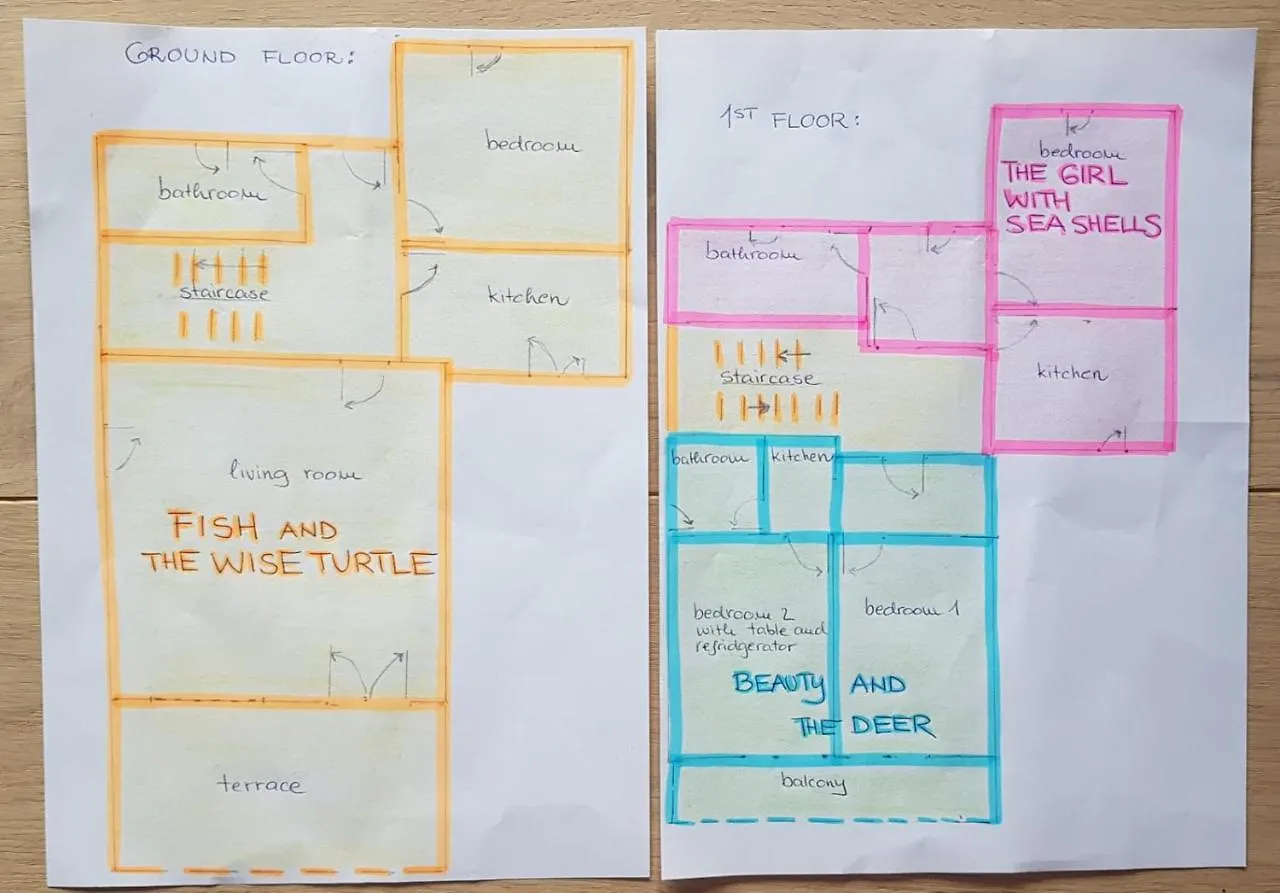 GROUND FLOOR:
bedroom
bathroom
staircase
kitchen
living room
FISH AND
THE WISE TURTLE
terrace
1ST FLOOR:
bedroom
THE GIRL
WITH
SEA SHELLS
bathroom
kitchen
staircase
bathroom
kitchen
bedroom 2
with table and
refridgerator
bedroom 1
BEAUTY AND
THE DEER
balcony